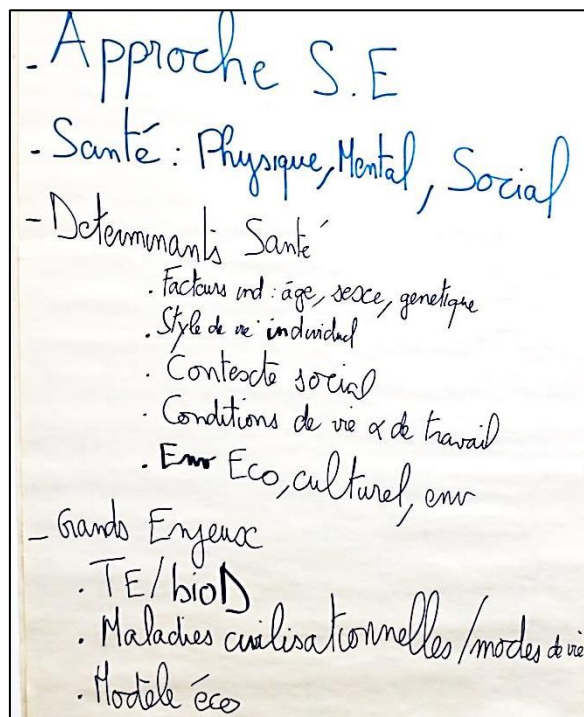 - Approche S.E
- Santé : Physique, Mental, Social
- Determinants Santé
. Facteurs ind : âge, sexe, genetique
. Style de vie individuel
. Contexte social
. Conditions de vie & de travail
. Env Eco, culturel, env
- Grands Enjeux
. TE/bioD
. Maladies civilisationnelles/modes de vie
. Modèle éco